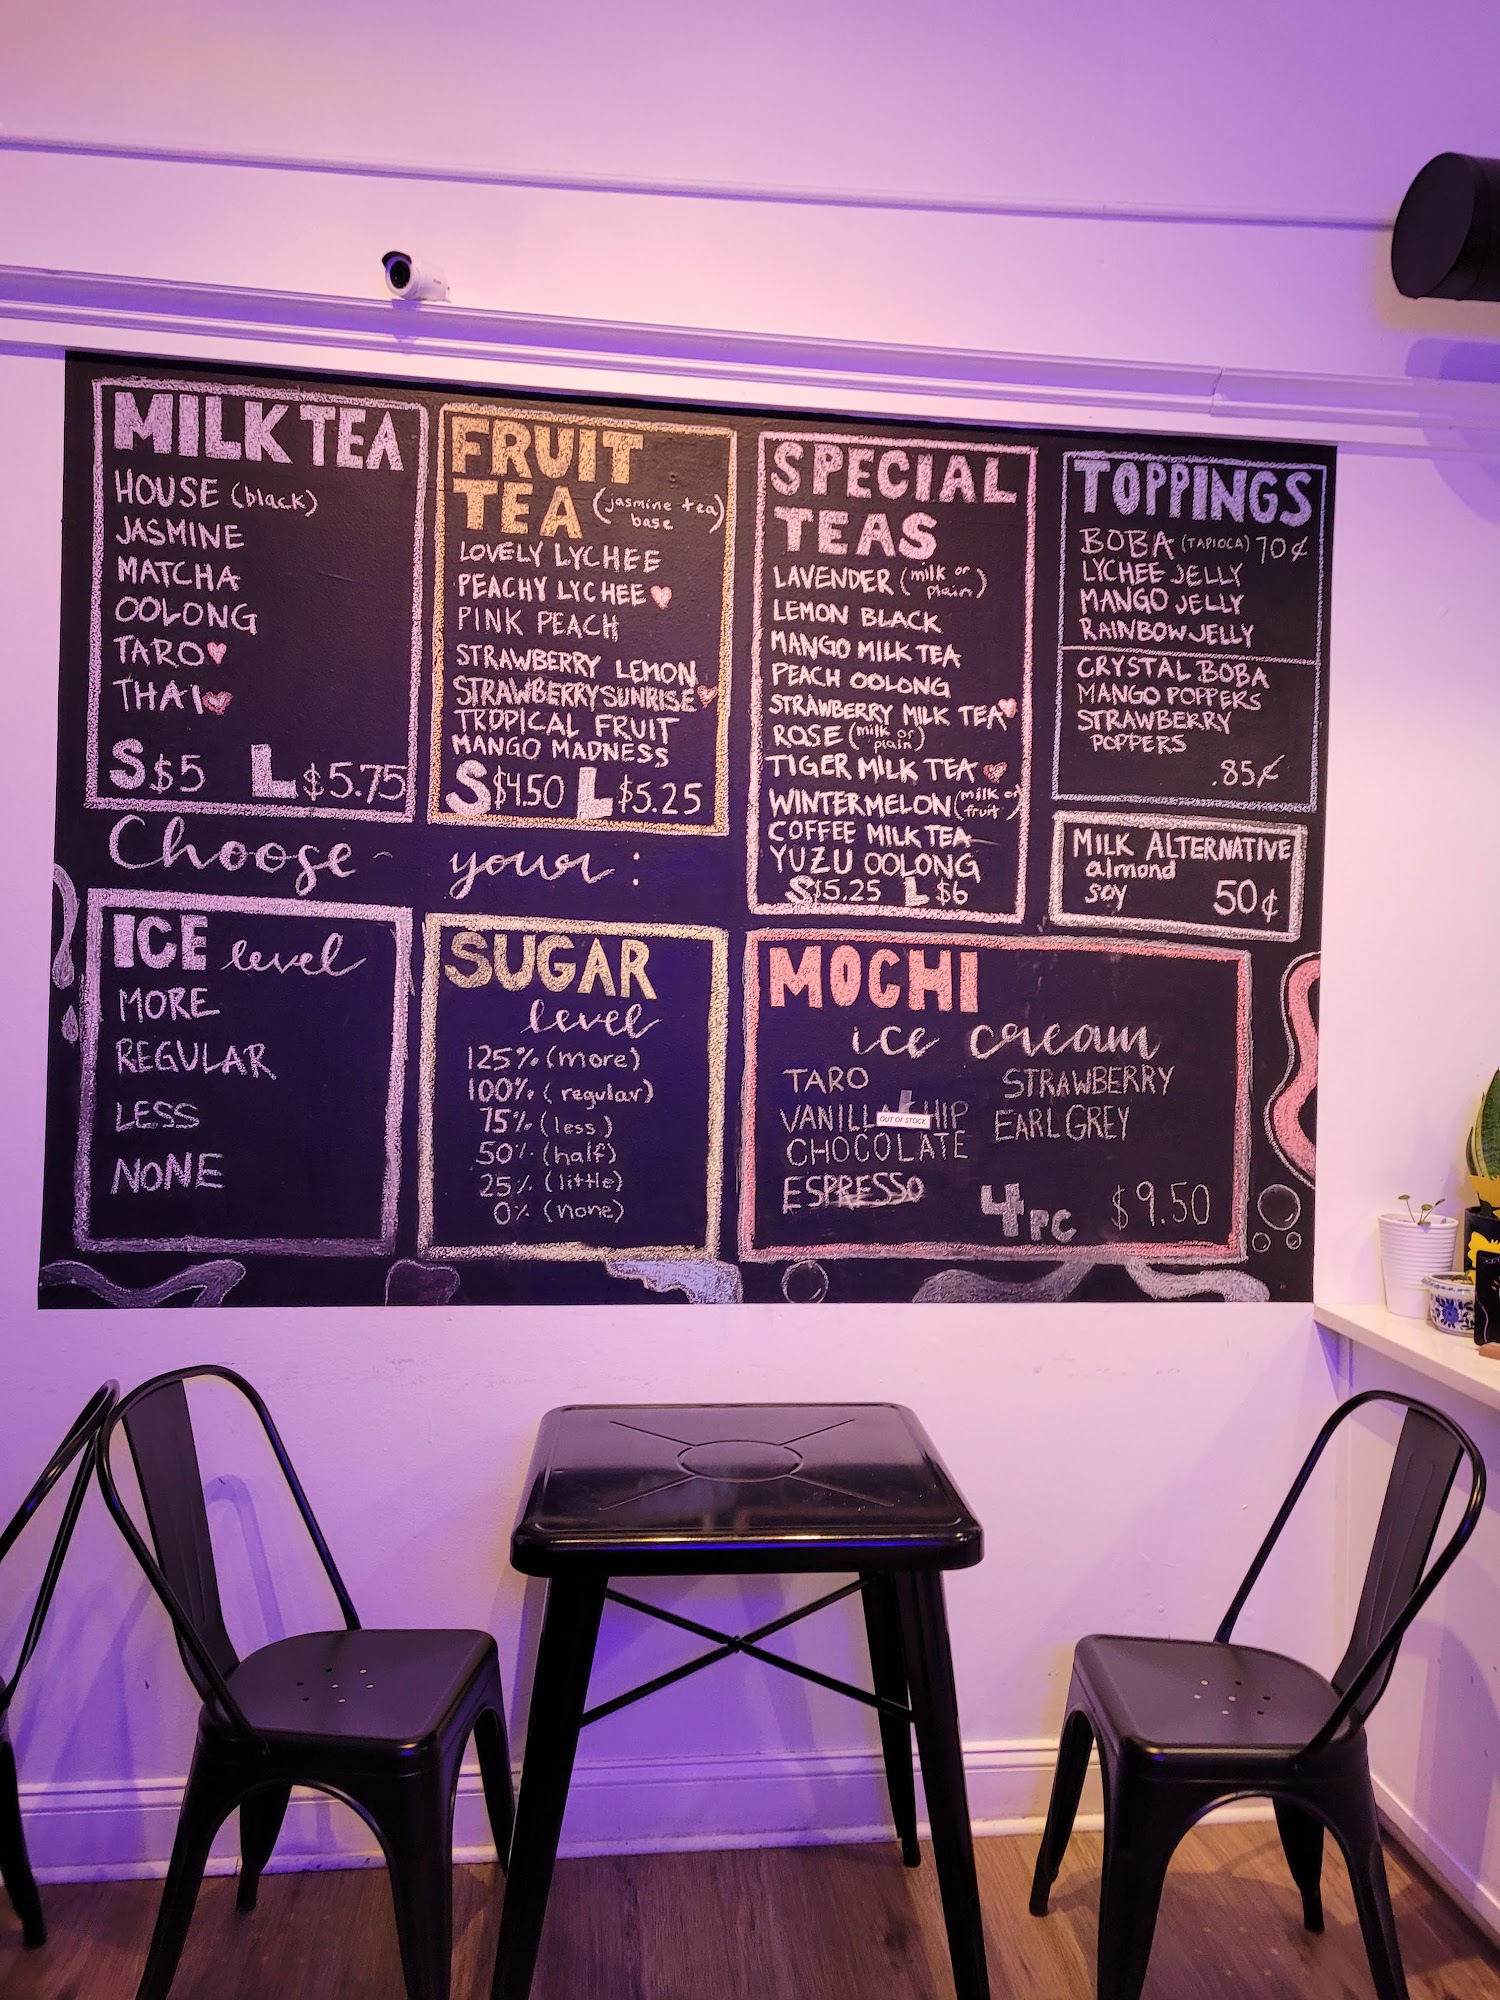 MILK TEA
HOUSE (black)
JASMINE
MATCHA
OOLONG
TARO
THAI
S $5 L $5.75
FRUIT
TEA (jasmine tea
base)
LOVELY LYCHEE
PEACHY LYCHEE
PINK PEACH
STRAWBERRY LEMON
STRAWBERRY SUNRISE
TROPICAL FRUIT
MANGO MADNESS
S $4.50 L $5.25
SPECIAL
TEAS
LAVENDER (milk or
plain)
LEMON BLACK
MANGO MILK TEA
PEACH OOLONG
STRAWBERRY MILK TEA
ROSE (milk or
plain)
TIGER MILK TEA
WINTERMELON (milk or
fruit)
COFFEE MILK TEA
YUZU OOLONG
S $5.25 L $6
TOPPINGS
BOBA (TAPIOCA) 70¢
LYCHEE JELLY
MANGO JELLY
RAINBOW JELLY
CRYSTAL BOBA
MANGO POPPERS
STRAWBERRY
POPPERS
.85¢
MILK ALTERNATIVE
almond
soy 50¢
Choose your:
ICE level
MORE
REGULAR
LESS
NONE
SUGAR
level
125% (more)
100% (regular)
75% (less)
50% (half)
25% (little)
0% (none)
MOCHI
ice cream
TARO STRAWBERRY
VANILLA HIP EARL GREY
OUT OF STOCK
CHOCOLATE
ESPRESSO
4PC $9.50